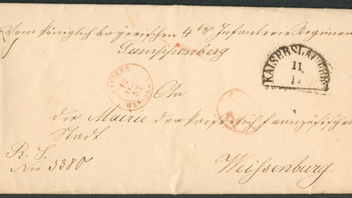 Vom königlich bayerischen 4ten Infanterie Regiment
Gumppenberg
KAISERSLAUTERN
11
An
die Mairie der kaiserlich französischen
Stadt
R. S.
Nro 3380
Weissenburg